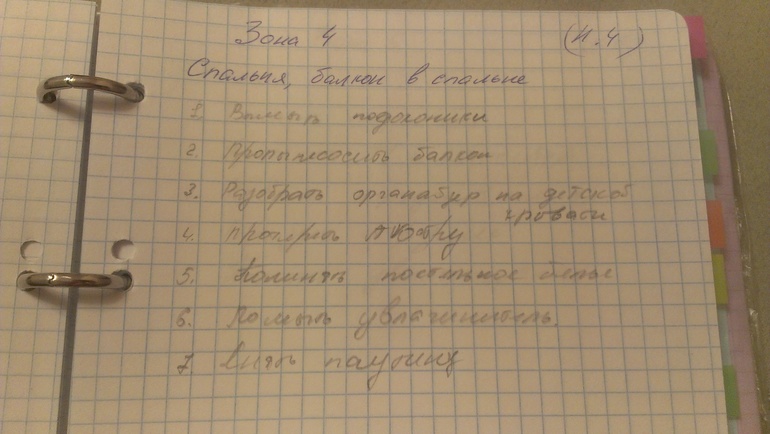 Зона 4 (н.4)
Спальня, балкон в спальне
1. Вымыть подоконники
2. Пропылесосить балкон
3. Разобрать органайзер на детской
кровати
4. Протереть люстру
5. постельное белье
6. Помыть увлажнитель.
7. Снять паутину